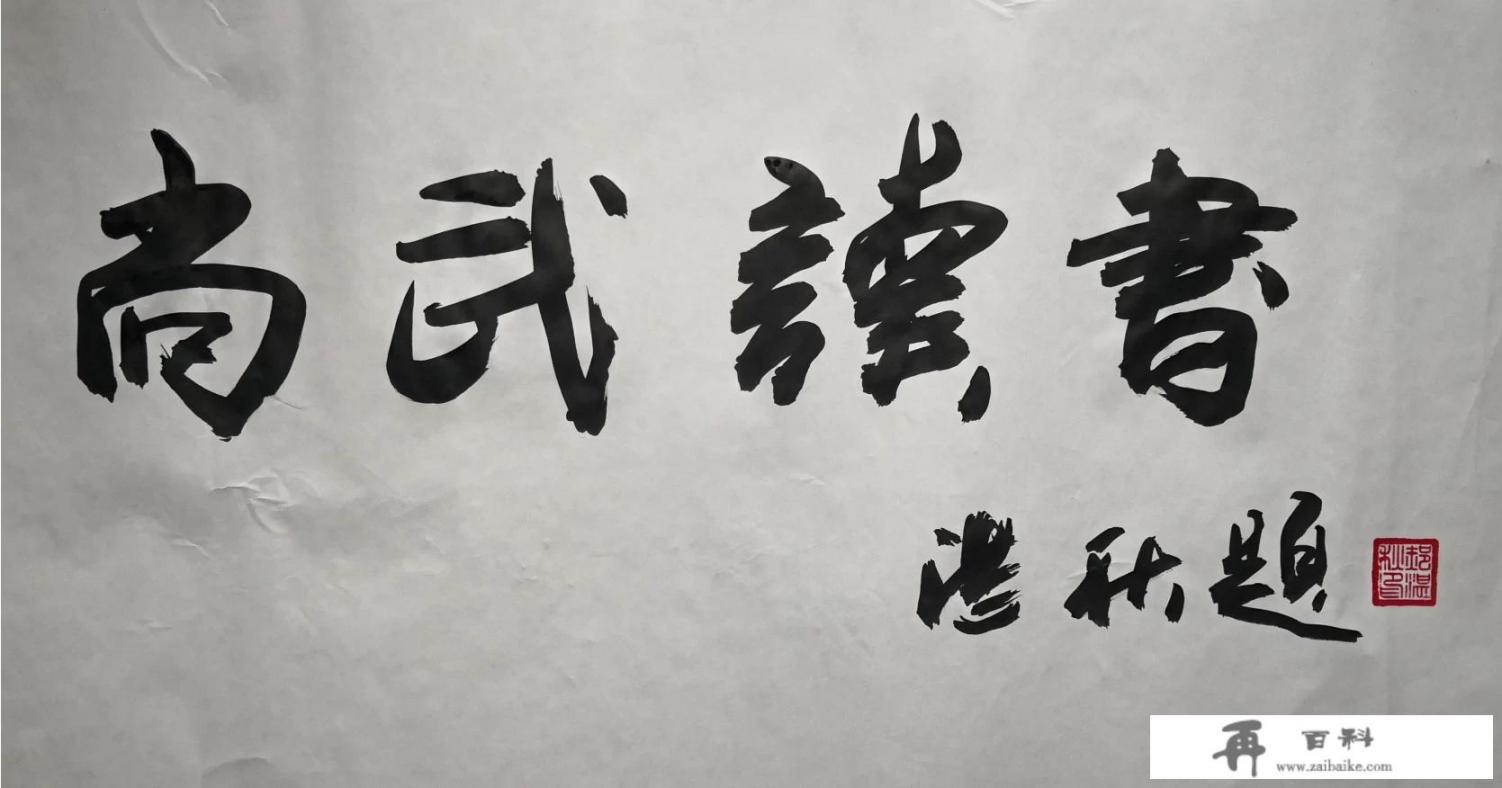 尚武讀書
湛秋題
再百科
www.zaibaike.com